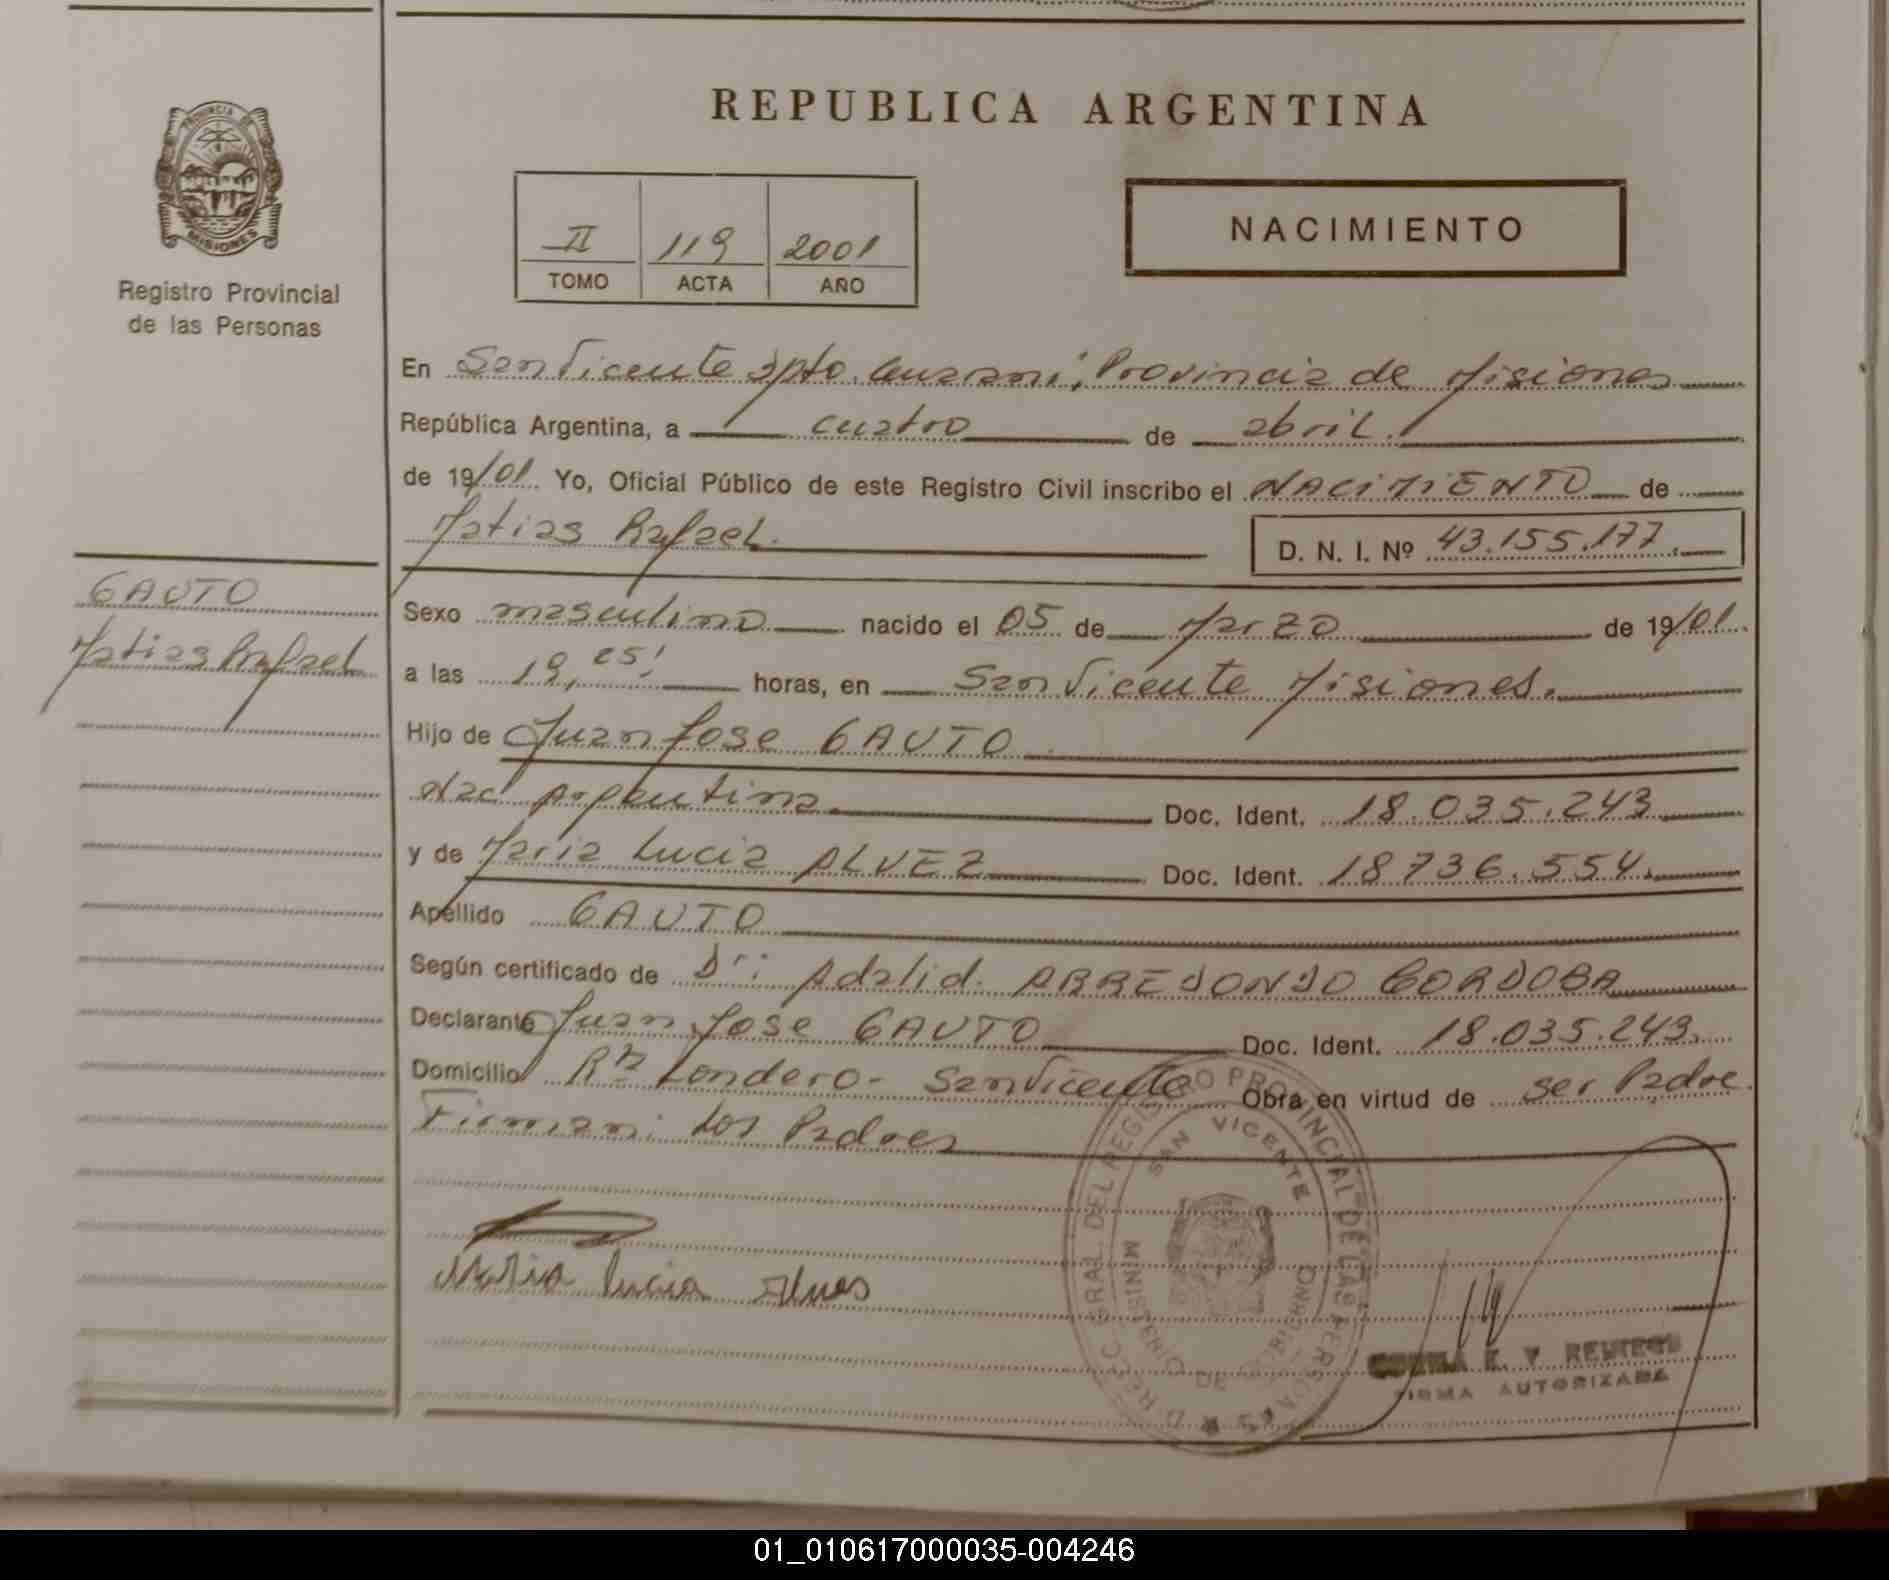 REPUBLICA ARGENTINA
PROVINCIA DE
MISIONES
Registro Provincial
de las Personas
II 119 2001
TOMO ACTA AÑO
NACIMIENTO
En San Vicente Dpto. Guaraní, Provincia de Misiones
República Argentina, a cuatro de abril.
de 19/01. Yo, Oficial Público de este Registro Civil inscribo el NACIMIENTO de
Matias Rafael. D. N. I. Nº 43.155.177.
GAUTO
Matias Rafael
Sexo masculino nacido el 05 de Marzo de 19/01.
a las 19,25' horas, en San Vicente Misiones.
Hijo de Juan Jose GAUTO
Nac Argentina. Doc. Ident. 18.035.243
y de Maria Lucia ALVEZ Doc. Ident. 18736.554.
Apellido GAUTO
Según certificado de Dr: Adalid. ARREDONDO CORDOBA
Declarante Juan Jose GAUTO Doc. Ident. 18.035.243.
Domicilio Londero - San Vicente Obra en virtud de ser Padre.
Firman: Los Padres
Maria Lucia Alves
D REC. GRAL. DEL REGISTRO PROVINCIAL DE LAS PERSONAS
SAN VICENTE
MINISTERIO DE GOBIERNO
FIRMA AUTORIZADA
01_010617000035-004246